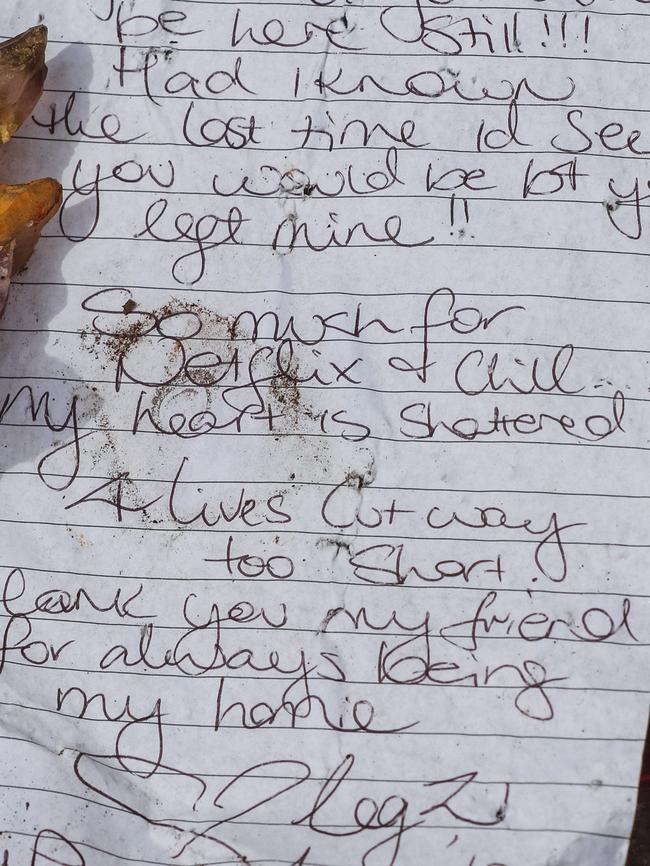 be here Still!!!
Had I known
the last time id See
you would be b4 y
left mine!!
So much for
Netflix & Chill..
my heart is shattered
4 lives Cut way
too Short.
ank you my friend
for always being
my homie
legz